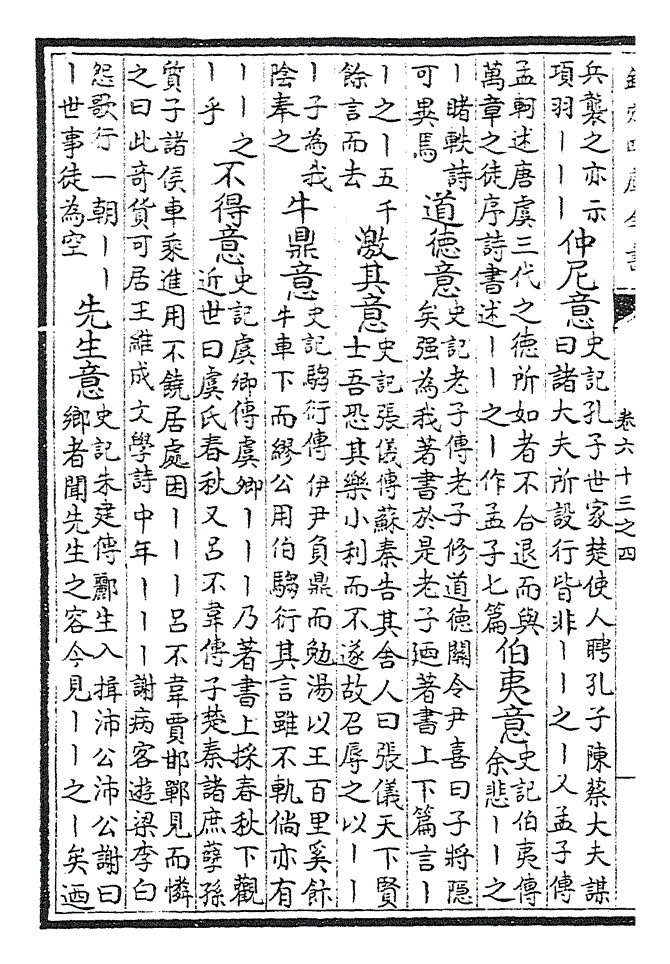 欽定四庫全書
卷六十三之四
兵襲之亦示
項羽丨丨丨
仲尼意
史記孔子世家楚使人聘孔子陳蔡大夫謀
曰諸大夫所設行皆非丨丨之丨又孟子傳
孟軻述唐虞三代之德所如者不合退而與
萬章之徒序詩書述丨丨之丨作孟子七篇
伯夷意
史記伯夷傳
余悲丨丨之
丨睹軼詩
可異焉
道德意
史記老子傳老子修道德關令尹喜曰子將隱
矣强為我著書於是老子廼著書上下篇言丨
丨之丨五千
餘言而去
激其意
史記張儀傳蘇秦告其舍人曰張儀天下賢
士吾恐其樂小利而不遂故召辱之以丨丨
丨子為我
陰奉之
牛鼎意
史記騶衍傳伊尹負鼎而勉湯以王百里奚飯
牛車下而繆公用伯騶衍其言雖不軌倘亦有
丨丨之
丨乎
不得意
史記虞卿傳虞卿丨丨丨乃著書上採春秋下觀
近世曰虞氏春秋又呂不韋傳子楚秦諸庶孽孫
質子諸侯車乘進用不饒居處困丨丨丨呂不韋賈邯鄲見而憐
之曰此奇貨可居王維成文學詩中年丨丨丨謝病客遊梁李白
怨歌行一朝丨丨
丨世事徒為空
先生意
史記朱建傳酈生入揖沛公沛公謝曰
鄉者聞先生之容今見丨丨之丨矣廼